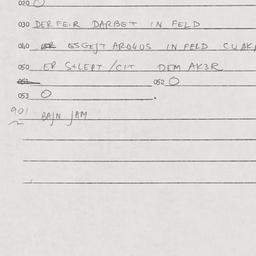 020 O
030 DER FE.R DARBET IN FELD
040 ESGEJT ARAUS IN FELD
050 ER S+LEPT /CIT DEM AK3R
051 052 O
053 O .
901 BAJN JAM